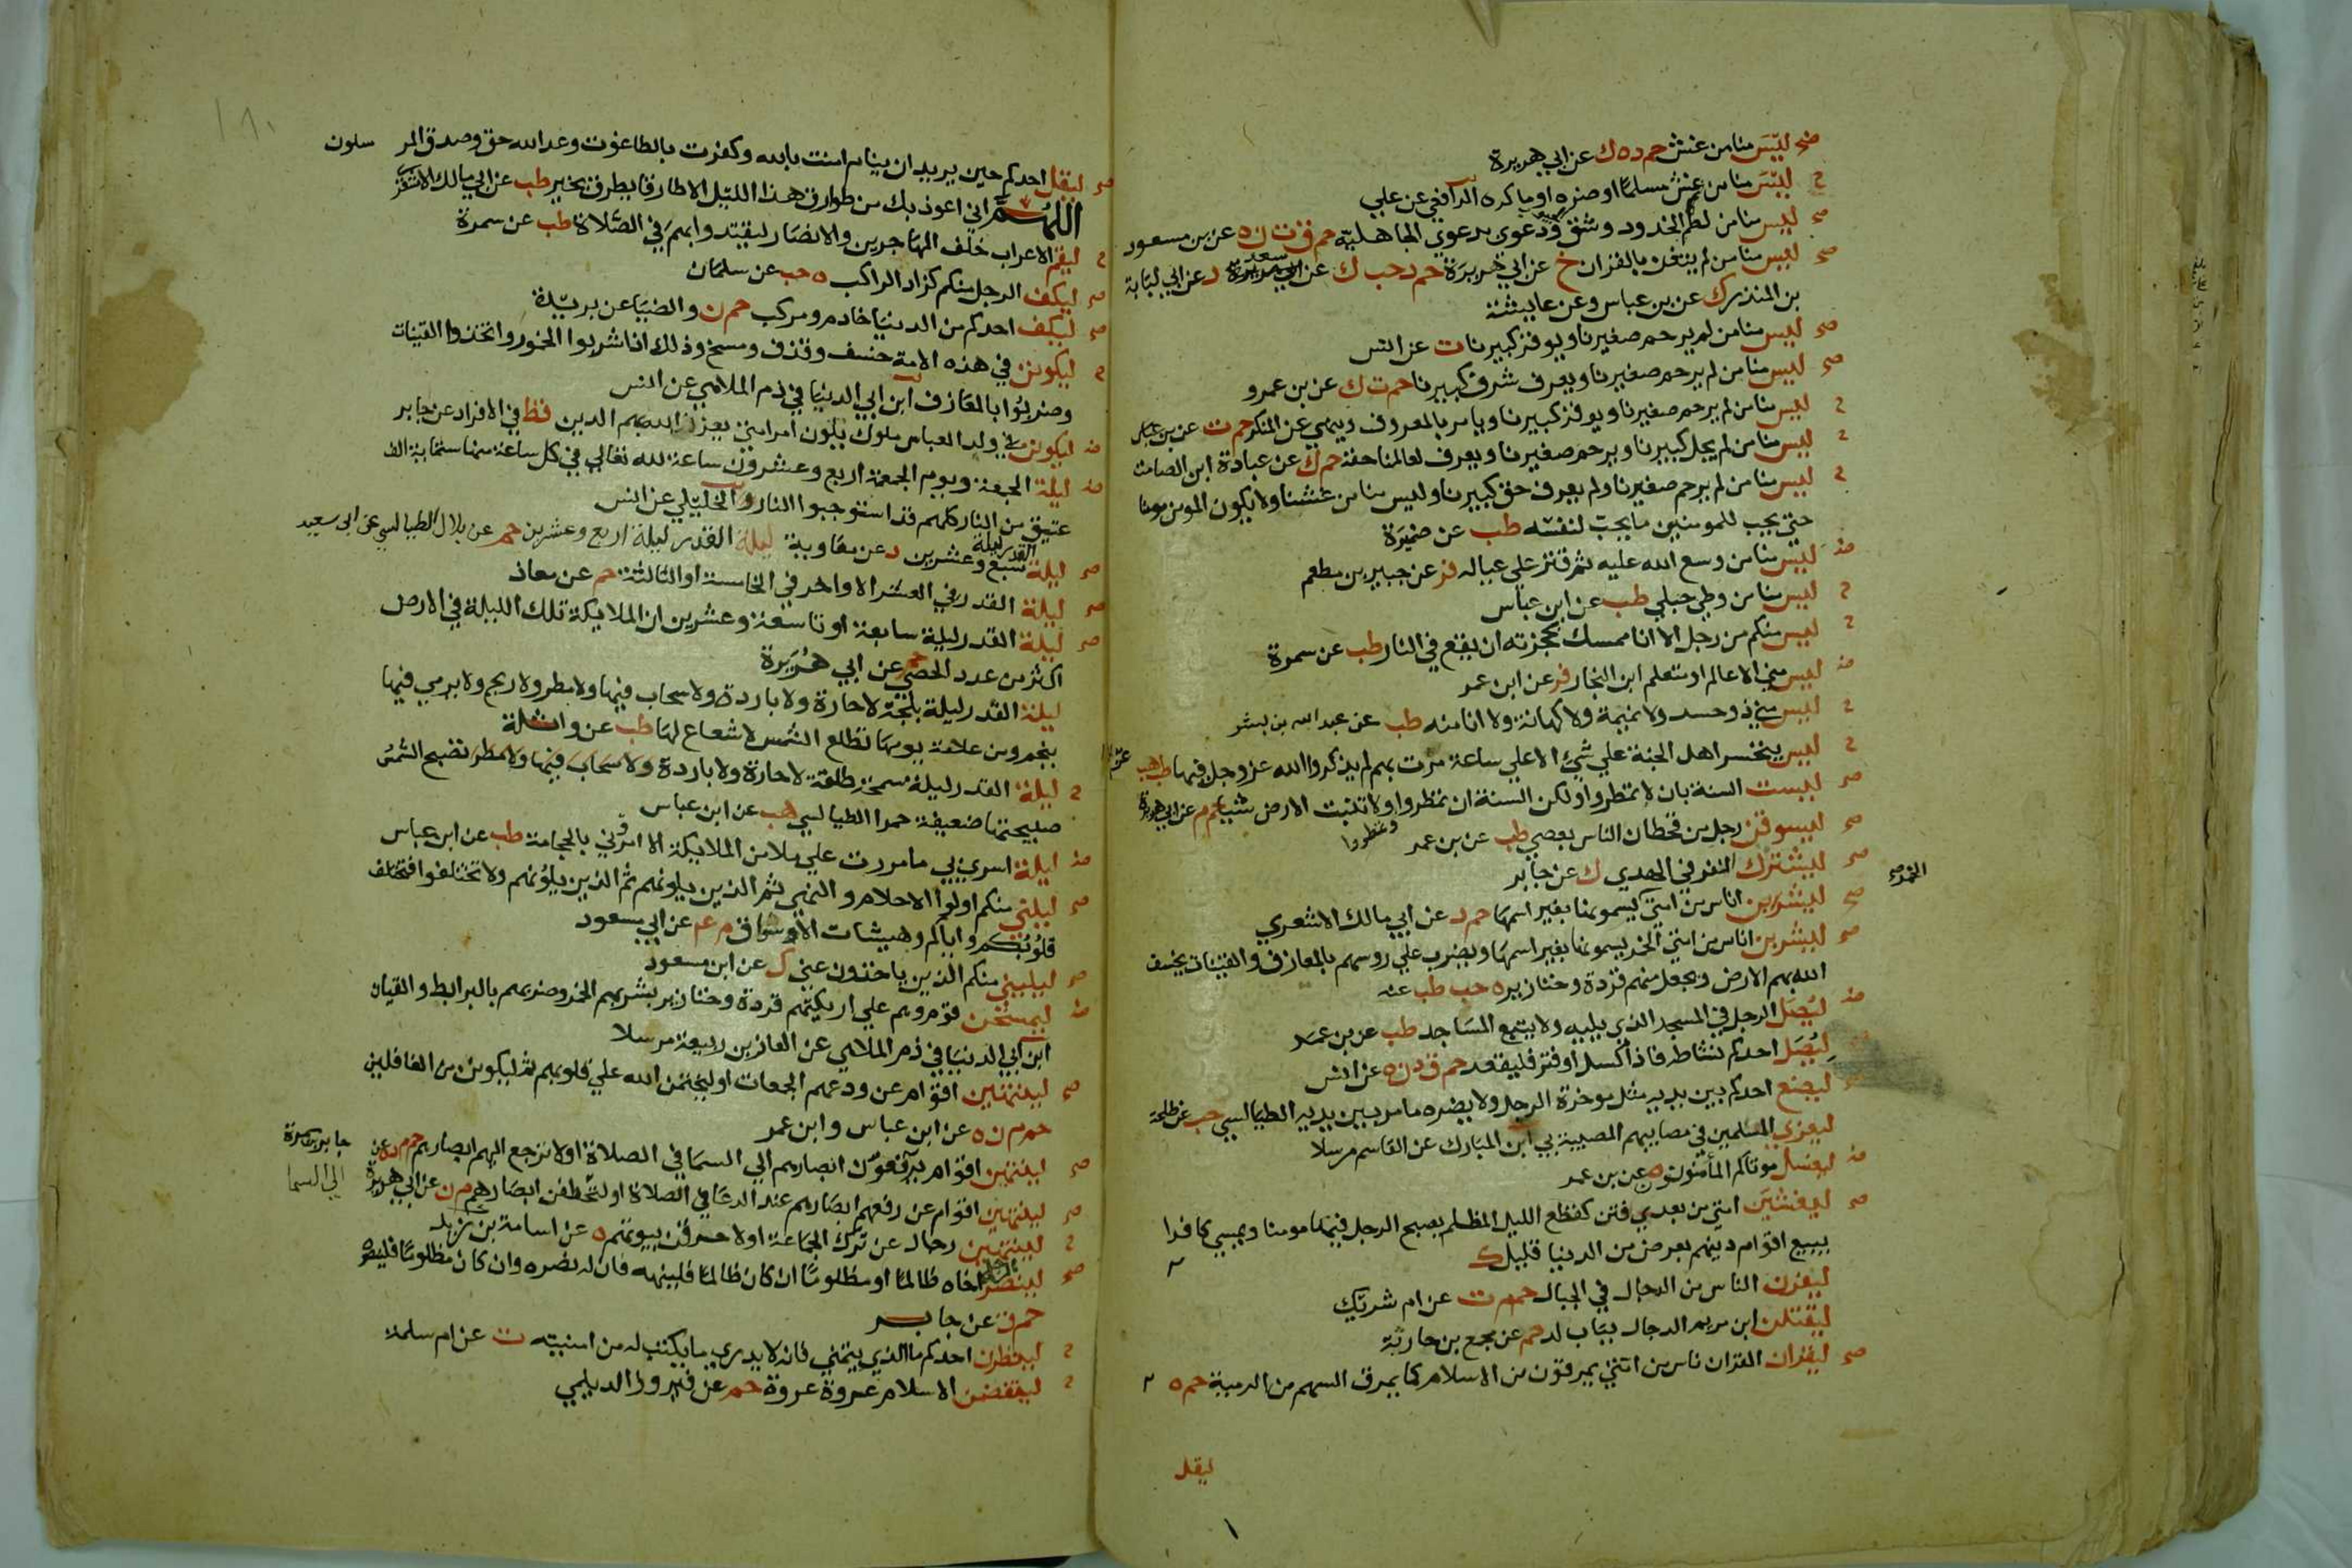 صح ليس منا من غش حم د ه ك عن ابي هريرة
ح ليس منا من غش مسلما او ضره او ماكره الرافعي عن علي
صح ليس منا من لطم الخدود وشق ودعوى بدعوي الجاهلية حم ق ت ن ه عن بن مسعود
صح ليس منا من لم يتغن بالقران خ عن ابي هريرة حم د حب ك عن سعد د عن ابي لبابة
بن المنذر ك عن بن عباس وعن عايشة
صح ليس منا من لم يرحم صغيرنا ويوقر كبيرنا ت عن انس
صح ليس منا من لم يرحم صغيرنا ويعرف شرف كبيرنا حم ت ك عن بن عمرو
ح ليس منا من لم يرحم صغيرنا ويوقر كبيرنا ويامر بالمعروف وينهي عن المنكر حم ت عن بن عباس
ح ليس منا من لم يجل كبيرنا ويرحم صغيرنا ويعرف لعالمنا حقه حم ك عن عبادة ابن الصامت
ح ليس منا من لم يرحم صغيرنا ولم يعرف حق كبيرنا وليس منا من غشنا ولا يكون المومن مومنا
حتي يحب للمومنين ما يحب لنفسه طب عن ضميرة
ض ليس منا من وسع الله عليه ثم قتر علي عياله فر عن جبير بن مطعم
ح ليس منا من وطي حبلي طب عن ابن عباس
ح ليس منكم من رجل الا انا ممسك بحجزته ان يقع في النار طب عن سمرة
ض ليس مني الا عالم او متعلم ابن النجار فر عن ابن عمر
ح ليس مني ذو حسد ولا نميمة ولا كهانة ولا انا منه طب عن عبد الله بن بسر
ح ليس يتحسر اهل الجنة علي شي الا علي ساعة مرت بهم لم يذكروا الله عز وجل فيها طب هب
صح ليست السنة بان لا تمطروا ولكن السنة ان تمطروا وتمطروا ولا تنبت الارض شيا حم م عن ابي هريرة
صح ليسوقن رجل من قحطان الناس بعصي طب عن بن عمر
صح ليشترك النفر في الهدي ك عن جابر
صح ليشربن اناس من امتي الخمر يسمونها بغير اسمها حم د عن ابي مالك الاشعري
صح ليشربن اناس من امتي الخمر يسمونها بغير اسمها ويضرب علي روسهم بالمعازف والقينات يخسف
الله بهم الارض ويجعل منهم قردة وخنازير ه حب طب عنه
ض ليصل الرجل في المسجد الذي يليه ولا يتبع المساجد طب عن بن عمر
ليصل احدكم نشاطه فاذا كسل او فتر فليقعد حم ق د ن ه عن انس
ليضع احدكم بين يديه مثل موخرة الرجل ولا يضره ما مر بين يديه الطيالسي حب عن طلحة
ليعزي المسلمين في مصايبهم المصيبة بي ابن المبارك عن القاسم مرسلا
ض ليغسل موتاكم المأمونون ه عن بن عمر
صح ليغشين امتي من بعدي فتن كقطع الليل المظلم يصبح الرجل فيها مومنا ويمسي كافرا
يبيع اقوام دينهم بعرض من الدنيا قليل ك
ليفرن الناس من الدجال في الجبال حم م ت عن ام شريك
ليقتلن ابن مريم الدجال بباب لد حم عن مجمع بن حارثة
صح ليقران القران ناس من امتي يمرقون من الاسلام كما يمرق السهم من الرمية حم ه
ليقل
١٨٠
صح ليقل احدكم حين يريد ان ينام امنت بالله وكفرت بالطاغوت وعد الله حق وصدق المرسلون
اللهم اني اعوذ بك من طوارق هذا الليل الا طارقا يطرق بخير طب عن ابي مالك الاشعري
ح ليقم الاعراب خلف المهاجرين والانصار ليقتدوا بهم في الصلاة طب عن سمرة
صح ليكف الرجل منكم كزاد الراكب ه حب عن سلمان
صح ليكف احدكم من الدنيا خادم ومركب حم ن والضيا عن بريدة
ح ليكونن في هذه الامة خسف وقذف ومسخ وذلك اذا شربوا الخمور واتخذوا القينات
وضربوا بالمعازف ابن ابي الدنيا في ذم الملاهي عن انس
ض ليكونن في ولد العباس ملوك يلون امر امتي يعز الله بهم الدين قط في الافراد عن جابر
ض ليلة الجمعة ويوم الجمعة اربع وعشرون ساعة لله تعالي في كل ساعة منها ستماية الف
عتيق من النار كلهم قد استوجبوا النار الخليلي عن انس
صح ليلة القدر ليلة سبع وعشرين د عن معاوية ليلة القدر ليلة اربع وعشرين حم عن بلال الطيالسي عن ابي سعيد
صح ليلة القدر في العشر الاواخر في الخامسة او الثالثة حم عن معاذ
صح ليلة القدر ليلة سابعة او تاسعة وعشرين ان الملايكة تلك الليلة في الارض
اكثر من عدد الحصي حم عن ابي هريرة
ليلة القدر ليلة بلجة لا حارة ولا باردة ولا سحاب فيها ولا مطر ولا ريح ولا يرمي فيها
بنجم ومن علامة يومها تطلع الشمس لا شعاع لها طب عن واثلة
ح ليلة القدر ليلة سمحة طلقة لا حارة ولا باردة ولا سحاب فيها ولا مطر تصبح الشمس
صبيحتها ضعيفة حمرا الطيالسي هب عن ابن عباس
ض ليلة اسري بي ما مررت علي ملا من الملايكة الا امروني بالحجامة طب عن ابن عباس
صح ليلني منكم اولوا الاحلام والنهي ثم الذين يلونهم ثم الذين يلونهم ولا تختلفوا فتختلف
قلوبكم واياكم وهيشات الاسواق م عم عن ابي مسعود
صح ليليني منكم الذين ياخذون عني ك عن ابن مسعود
ض ليمسخن قوم وهم علي اريكتهم قردة وخنازير بشربهم الخمر وضربهم بالبرابط والقيان
ابن ابي الدنيا في ذم الملاهي عن الغاز بن ربيعة مرسلا
صح لينتهين اقوام عن ودعهم الجمعات او ليختمن الله علي قلوبهم ثم ليكونن من الغافلين
حم م ن ه عن ابن عباس وابن عمر
صح لينتهين اقوام يرفعون ابصارهم الي السما في الصلاة او لا ترجع اليهم ابصارهم حم م د ه عن جابر بن سمرة
صح لينتهين اقوام عن رفعهم ابصارهم عند الدعا في الصلاة الي السما او لتخطفن ابصارهم م ن عن ابي هريرة
ح لينتهين رجال عن ترك الجماعة او لاحرقن بيوتهم ه عن اسامة بن زيد
صح لينصر الرجل اخاه ظالما او مظلوما ان كان ظالما فلينهه فانه له نصره وان كان مظلوما فلينصره
حم ق عن جابر
ح لينظرن احدكم ما الذي يتمني فانه لا يدري ما يكتب له من امنيته ت عن ام سلمة
ح لينقضن الاسلام عروة عروة حم عن فيروز الديلمي